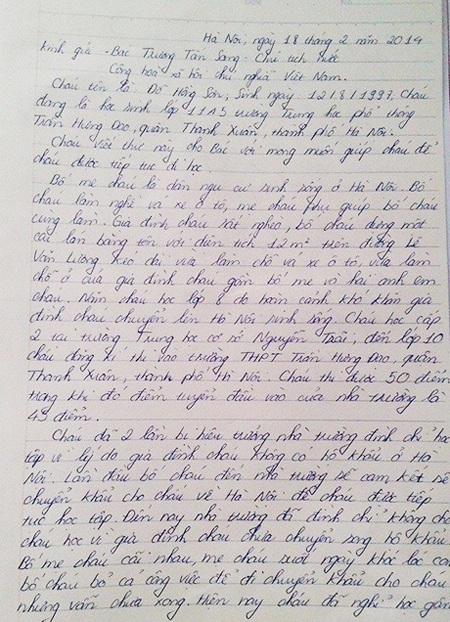 Hà Nội, ngày 18 tháng 2 năm 2014
Kính gửi - Bác Trương Tấn Sang - Chủ tịch nước
Cộng hoà xã hội chủ nghĩa Việt Nam.
Cháu tên là Đỗ Hồng Sơn, Sinh ngày 12/8/1997. Cháu
đang là học sinh lớp 11A5 trường trung học phổ thông
Trần Hưng Đạo, quận Thanh Xuân, thành phố Hà Nội.
Cháu viết thư này cho Bác với mong muốn giúp cháu để
cháu được tiếp tục đi học.
Bố mẹ cháu là dân ngụ cư sinh sống ở Hà Nội. Bố
cháu làm nghề vá xe ô tô, mẹ cháu phụ giúp bố cháu
cùng làm. Gia đình cháu rất nghèo, bố cháu dựng một
cái lán bằng tôn với diện tích 12 m² trên đường Lê
Văn Lương kéo dài vừa làm chỗ vá xe ô tô, vừa làm
chỗ ở của gia đình cháu gồm bố mẹ và hai anh em
cháu. Năm cháu học lớp 8 do hoàn cảnh khó khăn gia
đình cháu chuyển lên Hà Nội sinh sống. Cháu học cấp
2 tại trường Trung học cơ sở Nguyễn Trãi, đến lớp 10
cháu đăng kí thi vào trường THPT Trần Hưng Đạo, quận
Thanh Xuân, thành phố Hà Nội. Cháu thi được 50 điểm
trong khi đó điểm tuyển đầu vào của nhà trường là
43 điểm.
Cháu đã 2 lần bị hiệu trưởng nhà trường đình chỉ học
tập vì lý do gia đình cháu không có hộ khẩu ở Hà
Nội. Lần đầu bố cháu đến nhà trường để cam kết sẽ
chuyển khẩu cho cháu về Hà Nội để cháu được tiếp
tục học tập. Đến nay nhà trường đã đình chỉ không cho
cháu học vì gia đình cháu chưa chuyển song hộ khẩu.
Bố mẹ cháu cãi nhau, mẹ cháu suốt ngày khóc lóc còn
bố cháu bỏ cả công việc để đi chuyển khẩu cho cháu
nhưng vẫn chưa xong. Hiện nay cháu đã nghỉ học gần